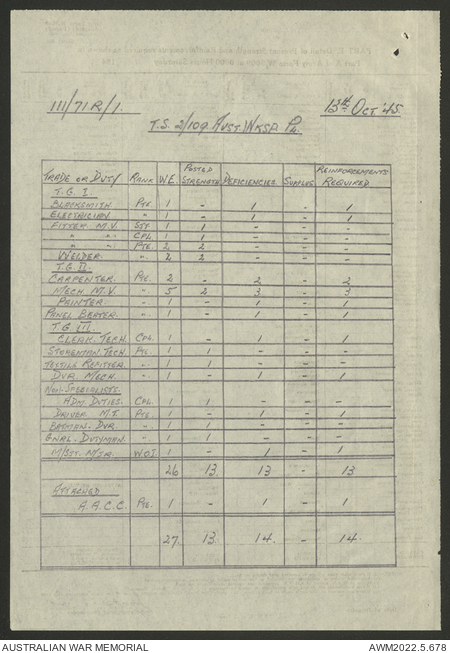 111/71R/1. 13th Oct '45
T.S. 2/109 Aust. Wksp. Pl.
Trade or Duty Rank W.E. Posted Strength Deficiencies Surplus Reinforcements Required
T.G. I.
Blacksmith Pte. 1 - 1 - 1
Electrician " 1 - 1 - 1
Fitter M.V. Sgt 1 1 - - -
" " Cpl 1 1 - - -
" " Pte. 2 2 - - -
Welder " 2 2 - - -
T.G. II
Carpenter Pte. 2 - 2 - 2
Mech. M.V. " 5 2 3 - 3
Painter " 1 - 1 - 1
Panel Beater " 1 - 1 - 1
T.G. III.
Clerk Tech. Cpl. 1 - 1 - 1
Storeman Tech. Pte. 1 1 - - -
Textile Refitter " 1 1 - - -
Dvr. Mech. " 1 - 1 - 1
Non-Specialists.
Adm. Duties. Cpl. 1 1 - - -
Driver M.T. Pte. 1 - 1 - 1
Batman. Dvr. " 1 1 - - -
Gnrl. Dutyman. " 1 1 - - -
W.O.I. 1 - 1 - 1
26 13 13 - 13
Attached
A.A.C.C. Pte. 1 - 1 - 1
27 13 14 - 14
AUSTRALIAN WAR MEMORIAL AWM2022.5.678